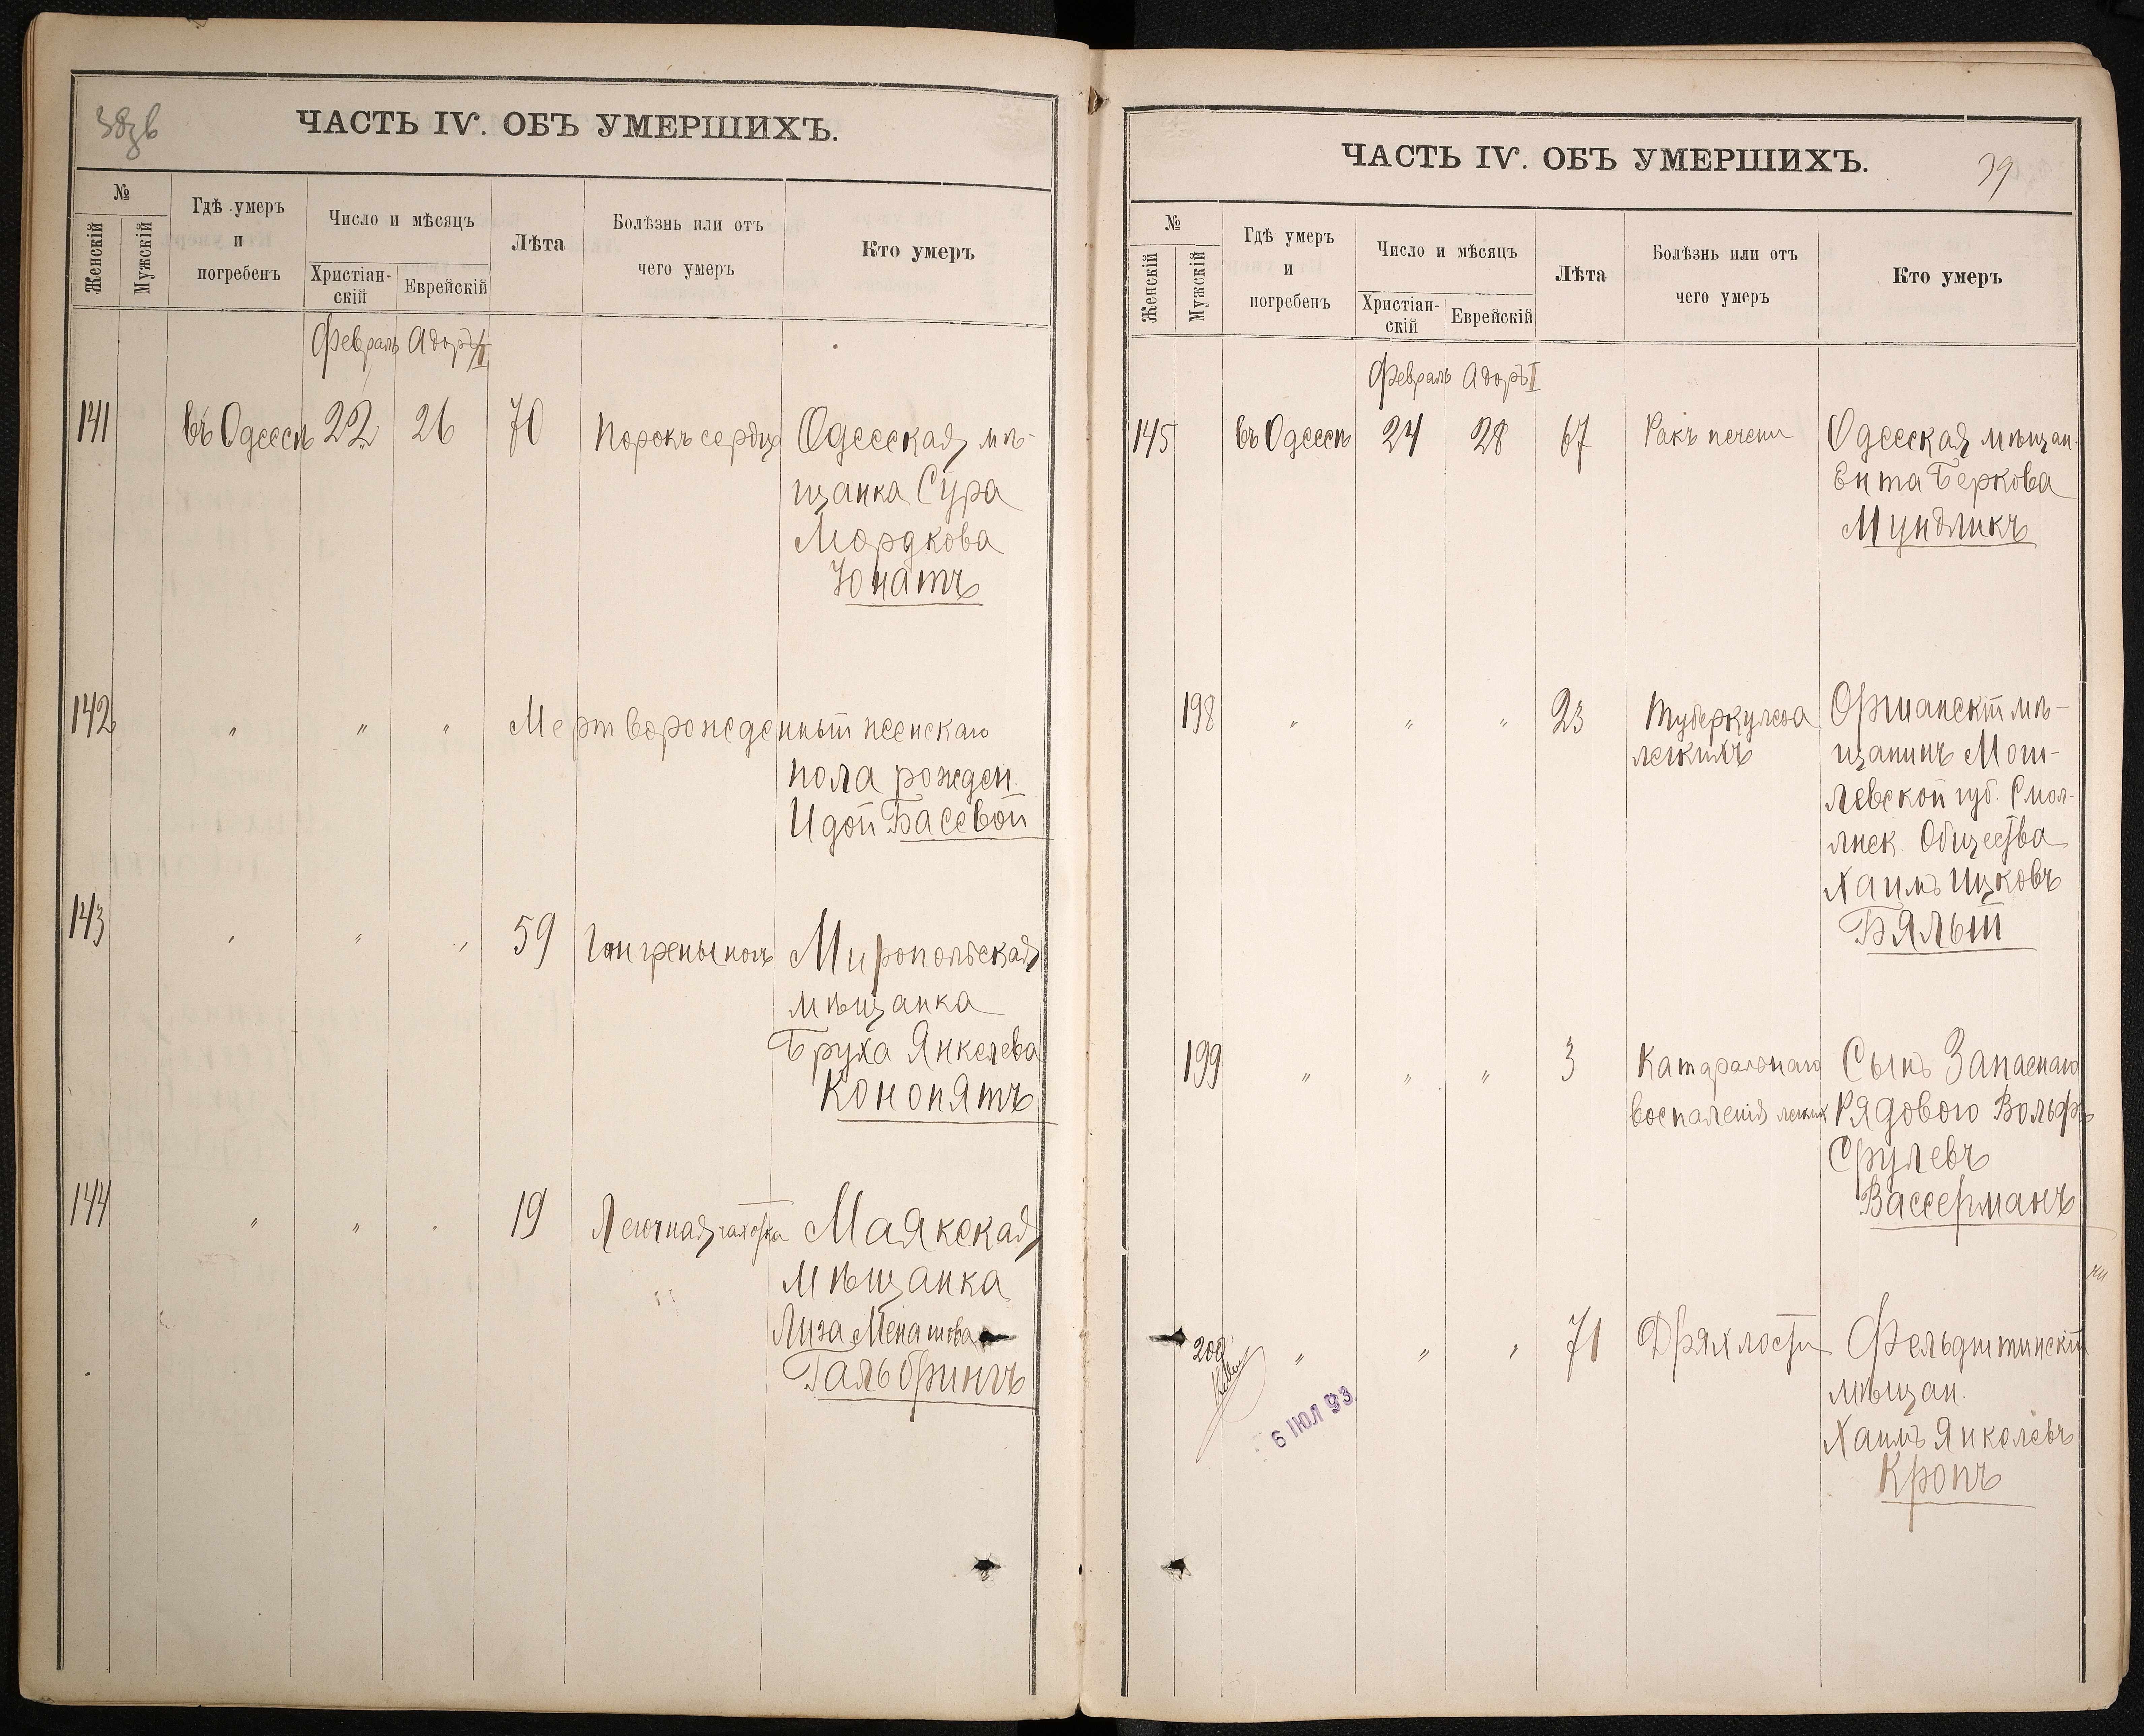 38об
ЧАСТЬ IV. ОБЪ УМЕРШИХЪ.
№
Женскій
Мужскій
Гдѣ умеръ
и
погребенъ
Число и мѣсяцъ
Христіан-
скій
Еврейскій
Лѣта
Болѣзнь или отъ
чего умеръ
Кто умеръ
Февраль Адоръ
141 въ Одессѣ 22 26 70 Порокъ сердца Одесская мѣ-
щанка Сура
Мордкова
Юнатъ
142 " " " Мертворожденный женскаго
пола рожден.
Идой Басевой
143 " " " 59 Гангрены ногъ Миропольская
мѣщанка
Бруха Янкелева
Конопятъ
144 " " " 19 Легочная чахотка Маякская
мѣщанка
Лиза Менашова
Гальбрингъ
ЧАСТЬ IV. ОБЪ УМЕРШИХЪ.
39
№
Женскій
Мужскій
Гдѣ умеръ
и
погребенъ
Число и мѣсяцъ
Христіан-
скій
Еврейскій
Лѣта
Болѣзнь или отъ
чего умеръ
Кто умеръ
Февраль Адоръ I
145 въ Одессѣ 24 28 67 Ракъ печени Одесская мѣщан.
Ента Беркова
Мундликъ
198 " " " 23 Туберкулеза Оршанскій мѣ-
легкихъ щанинъ Моги-
левской губ. Смол-
янск. Общества
Хаимъ Ицковъ
Бялый
199 " " " 3 Катаральнаго Сынъ Запаснаго
воспаленія легких Рядового Вольфъ
Срулевъ
Вассерманъ
200 " " " 71 Дряхлости Фельдштинскій
мѣщан.
Хаимъ Янкелевъ
Кропъ
6 ІЮЛ 93